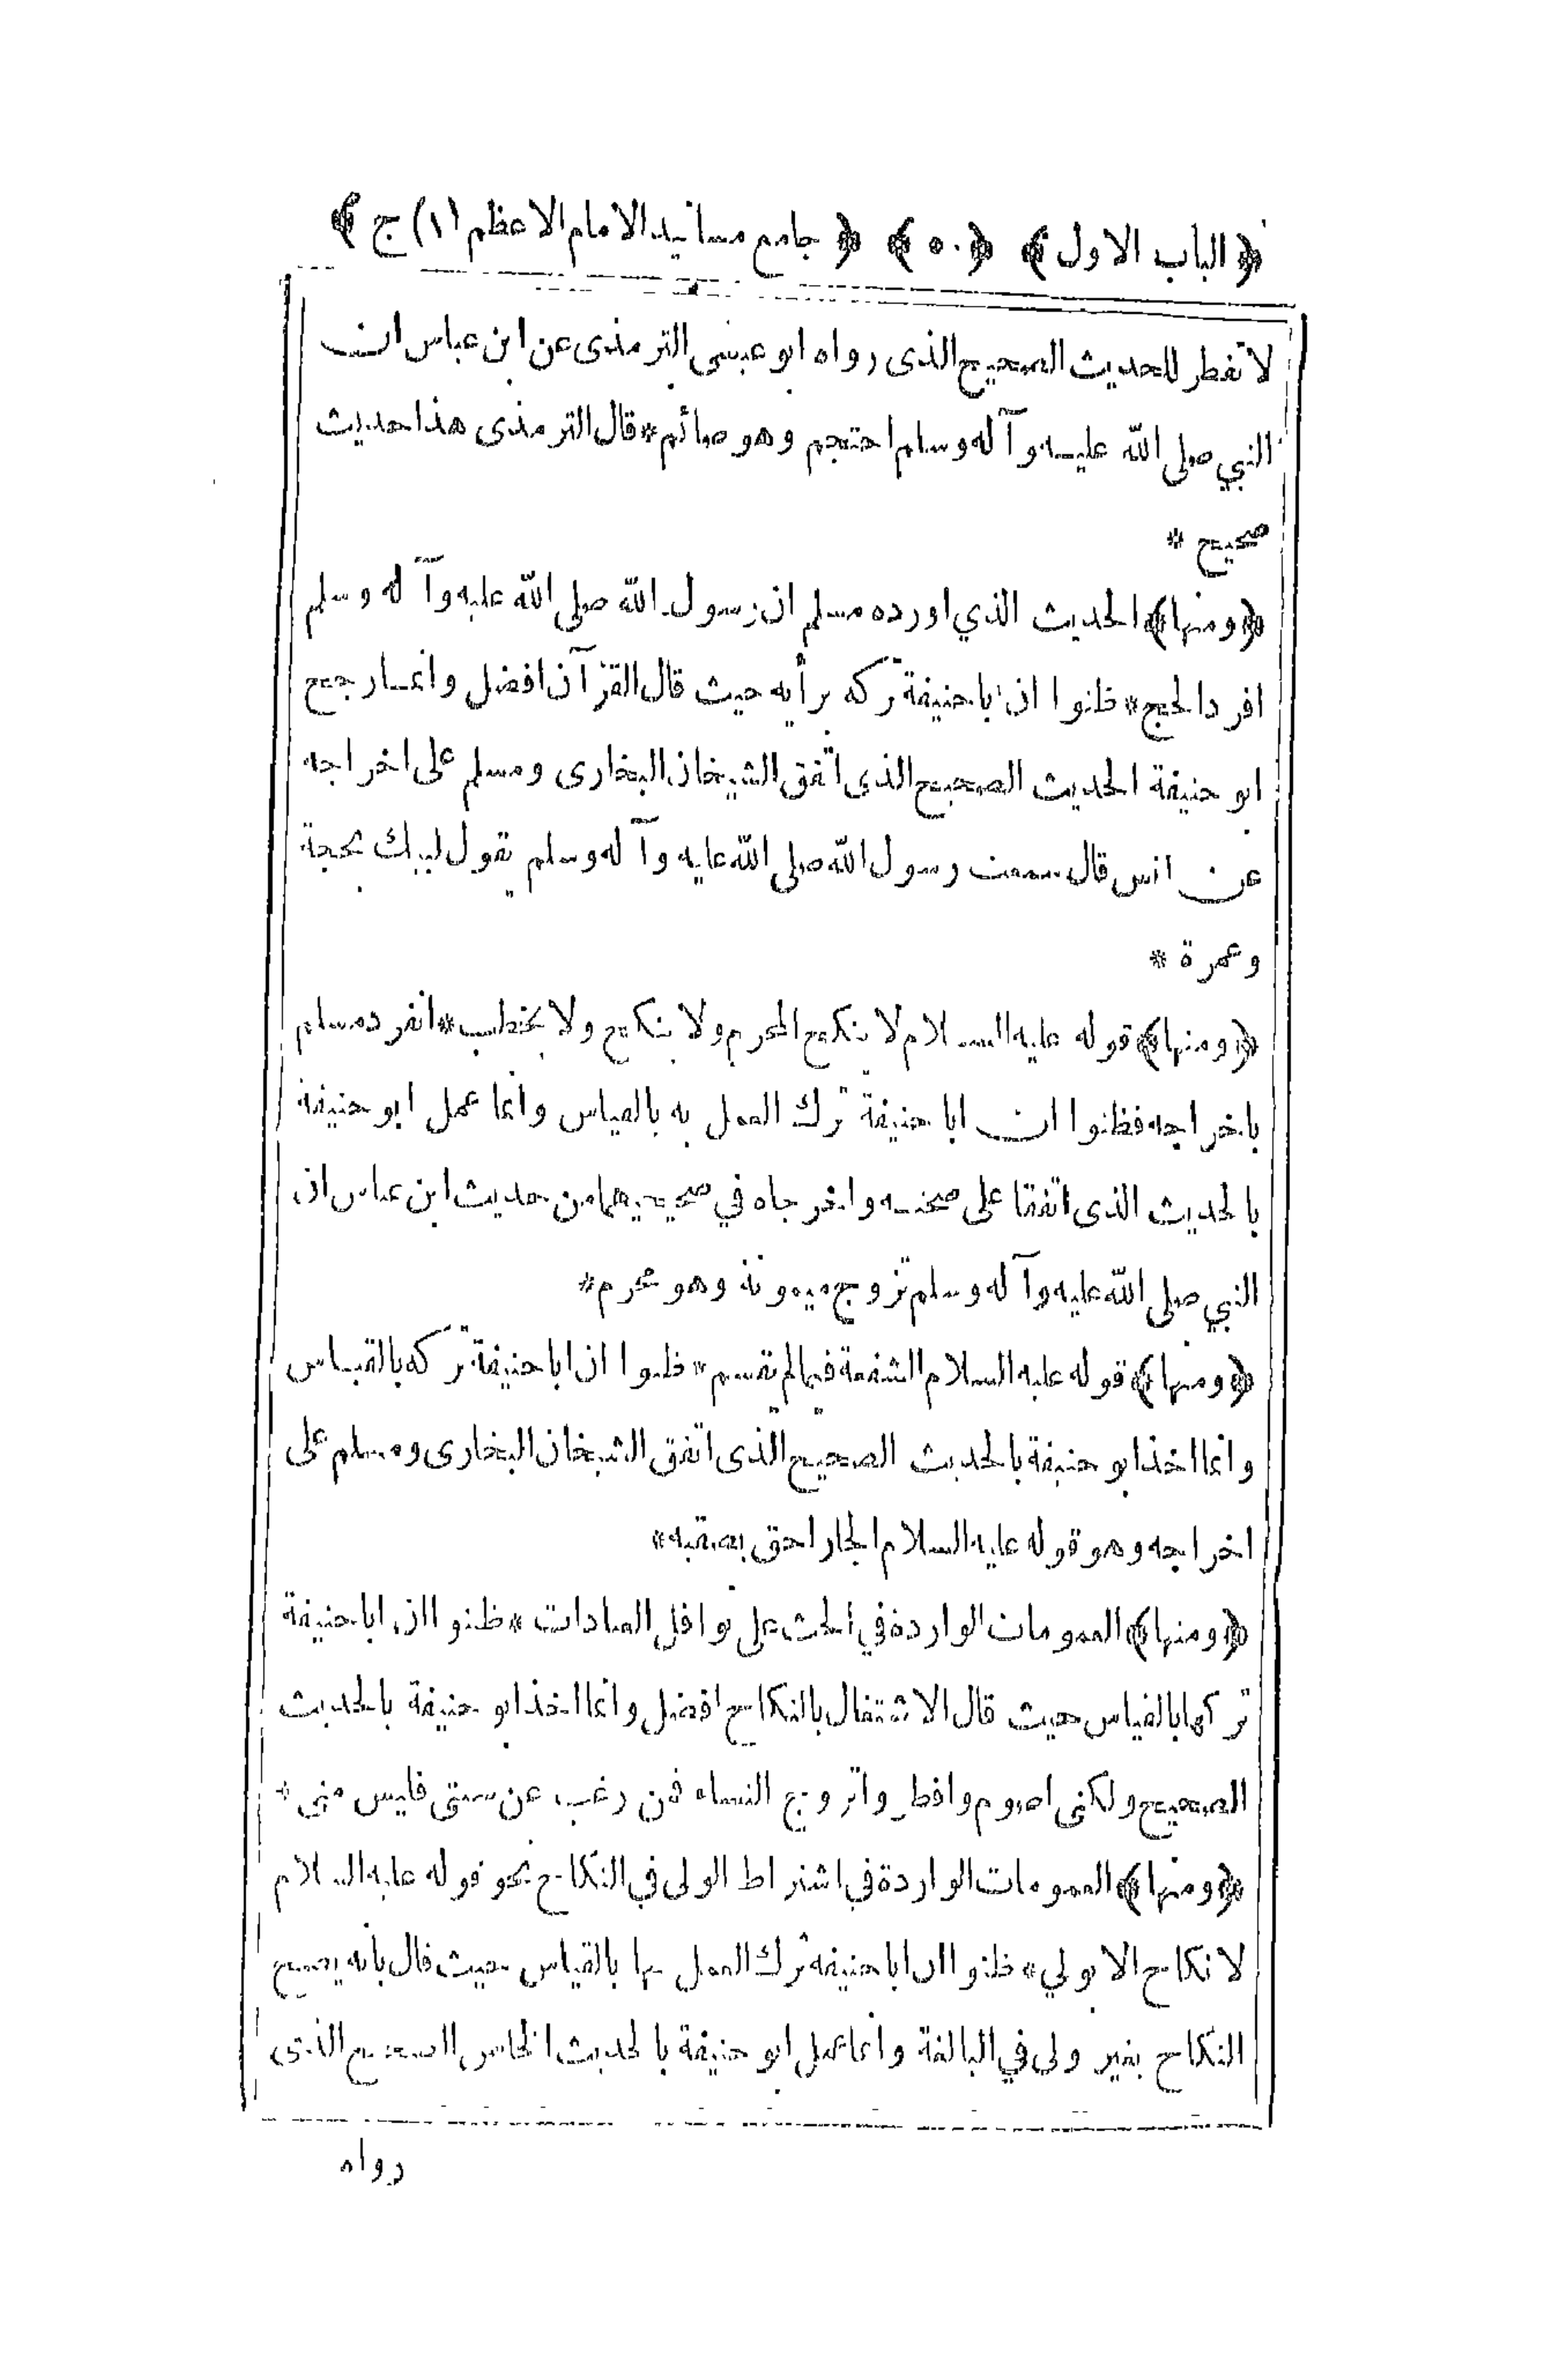 ﴿ الباب الاول ﴾ ﴿ ٥٠ ﴾ ﴿ جامع مسانيد الامام الاعظم (١) ج ﴾
لا تفطر للحديث الصحيح الذى رواه ابو عيسى الترمذى عن ابن عباس ان
النبي صلى الله عليه وآله وسلم احتجم وهو صائم * قال الترمذى هذا حديث
صحيح *
﴿ ومنها ﴾ الحديث الذي اورده مسلم ان رسول الله صلى الله عليه وآله وسلم
افرد الحج * ظنوا ان ابا حنيفة تركه برأيه حيث قال القرآن افضل وانما رجح
ابو حنيفة الحديث الصحيح الذى اتفق الشيخان البخارى ومسلم على اخراجه
عن انس قال سمعت رسول الله صلى الله عليه وآله وسلم يقول لبيك بحجة
وعمرة *
﴿ ومنها ﴾ قوله عليه السلام لا ينكح المحرم ولا ينكح ولا يخطب * انفرد مسلم
باخراجه فظنوا ان ابا حنيفة ترك العمل به بالقياس وانما عمل ابو حنيفة
بالحديث الذى اتفقا على صحته واخرجاه في صحيحيهما من حديث ابن عباس ان
النبي صلى الله عليه وآله وسلم تزوج ميمونة وهو محرم *
﴿ ومنها ﴾ قوله عليه السلام الشفعة فيما لم يقسم * ظنوا ان ابا حنيفة تركه بالقياس
وانما اخذ ابو حنيفة بالحديث الصحيح الذى اتفق الشيخان البخارى ومسلم على
اخراجه وهو قوله عليه السلام الجار احق بصقبه *
﴿ ومنها ﴾ العمومات الواردة في الحث على نوافل العبادات * ظنوا ان ابا حنيفة
تركها بالقياس حيث قال الاشتغال بالنكاح افضل وانما اخذ ابو حنيفة بالحديث
الصحيح ولكنى اصوم وافطر واتزوج النساء فمن رغب عن سنتى فليس منى *
﴿ ومنها ﴾ العمومات الواردة في اشتراط الولى في النكاح نحو قوله عليه السلام
لا نكاح الا بولي * ظنوا ان ابا حنيفة ترك العمل بها بالقياس حيث قال بأنه يصح
النكاح بغير ولى في البالغة وانما عمل ابو حنيفة بالحديث الخاص الصحيح الذى
رواه